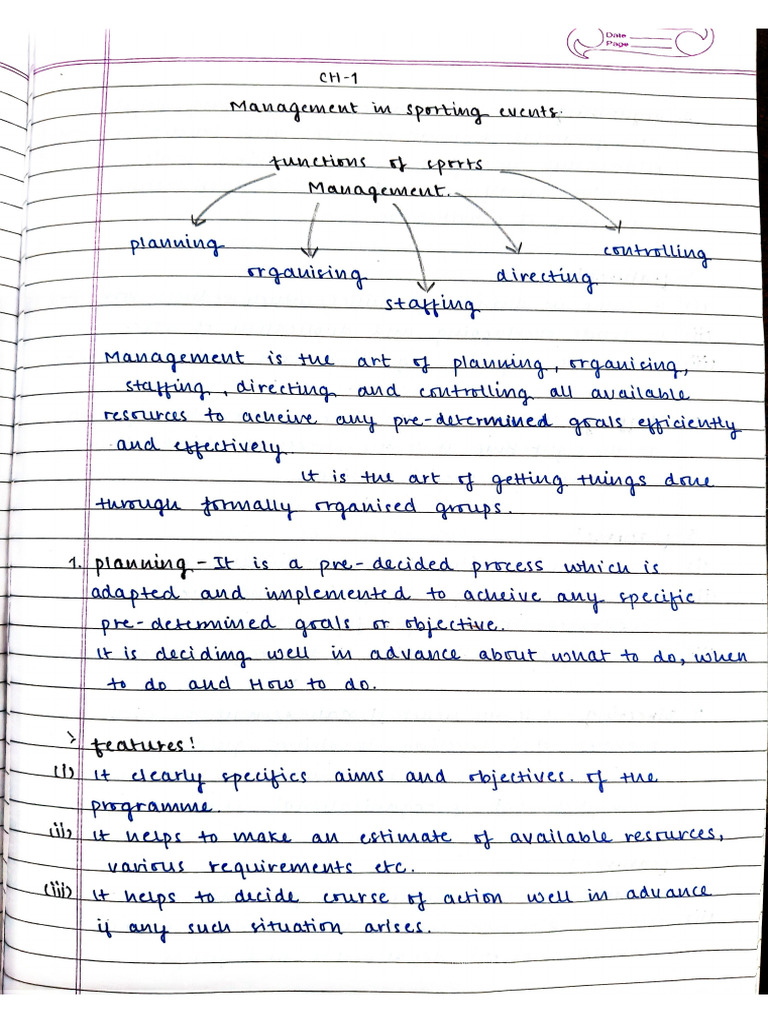 Date
Page
CH-1
Management in sporting events.
functions of sports
Management.
planning
controlling
organising
directing
staffing
Management is the art of planning, organising,
staffing, directing and controlling all available
resources to acheive any pre-determined goals efficiently
and effectively.
It is the art of getting things done
through formally organised groups.
1. planning - It is a pre-decided process which is
adapted and implemented to acheive any specific
pre-determined goals or objective.
It is deciding well in advance about what to do, when
to do and How to do.
> features!
(i) It clearly specifics aims and objectives. of the
programme.
(ii) It helps to make an estimate of available resources,
various requirements etc.
(iii) It helps to decide course of action well in advance
if any such situation arises.